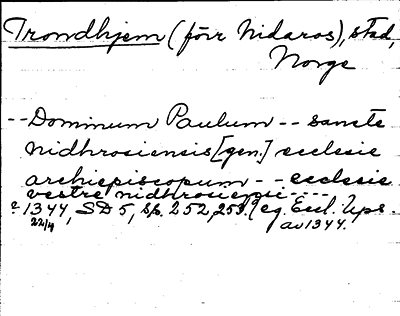 Trondhjem (förr Nidaros), stad,
Norge
-- Dominum Paulum -- sancte
nidhrosiensis [gen.] ecclesie
archiepiscopum -- ecclesie
vestre nidhrosiensi ----
1344, SD 5, s. 252, 253. Reg. Eccl. Ups.
22/4 av 1344.